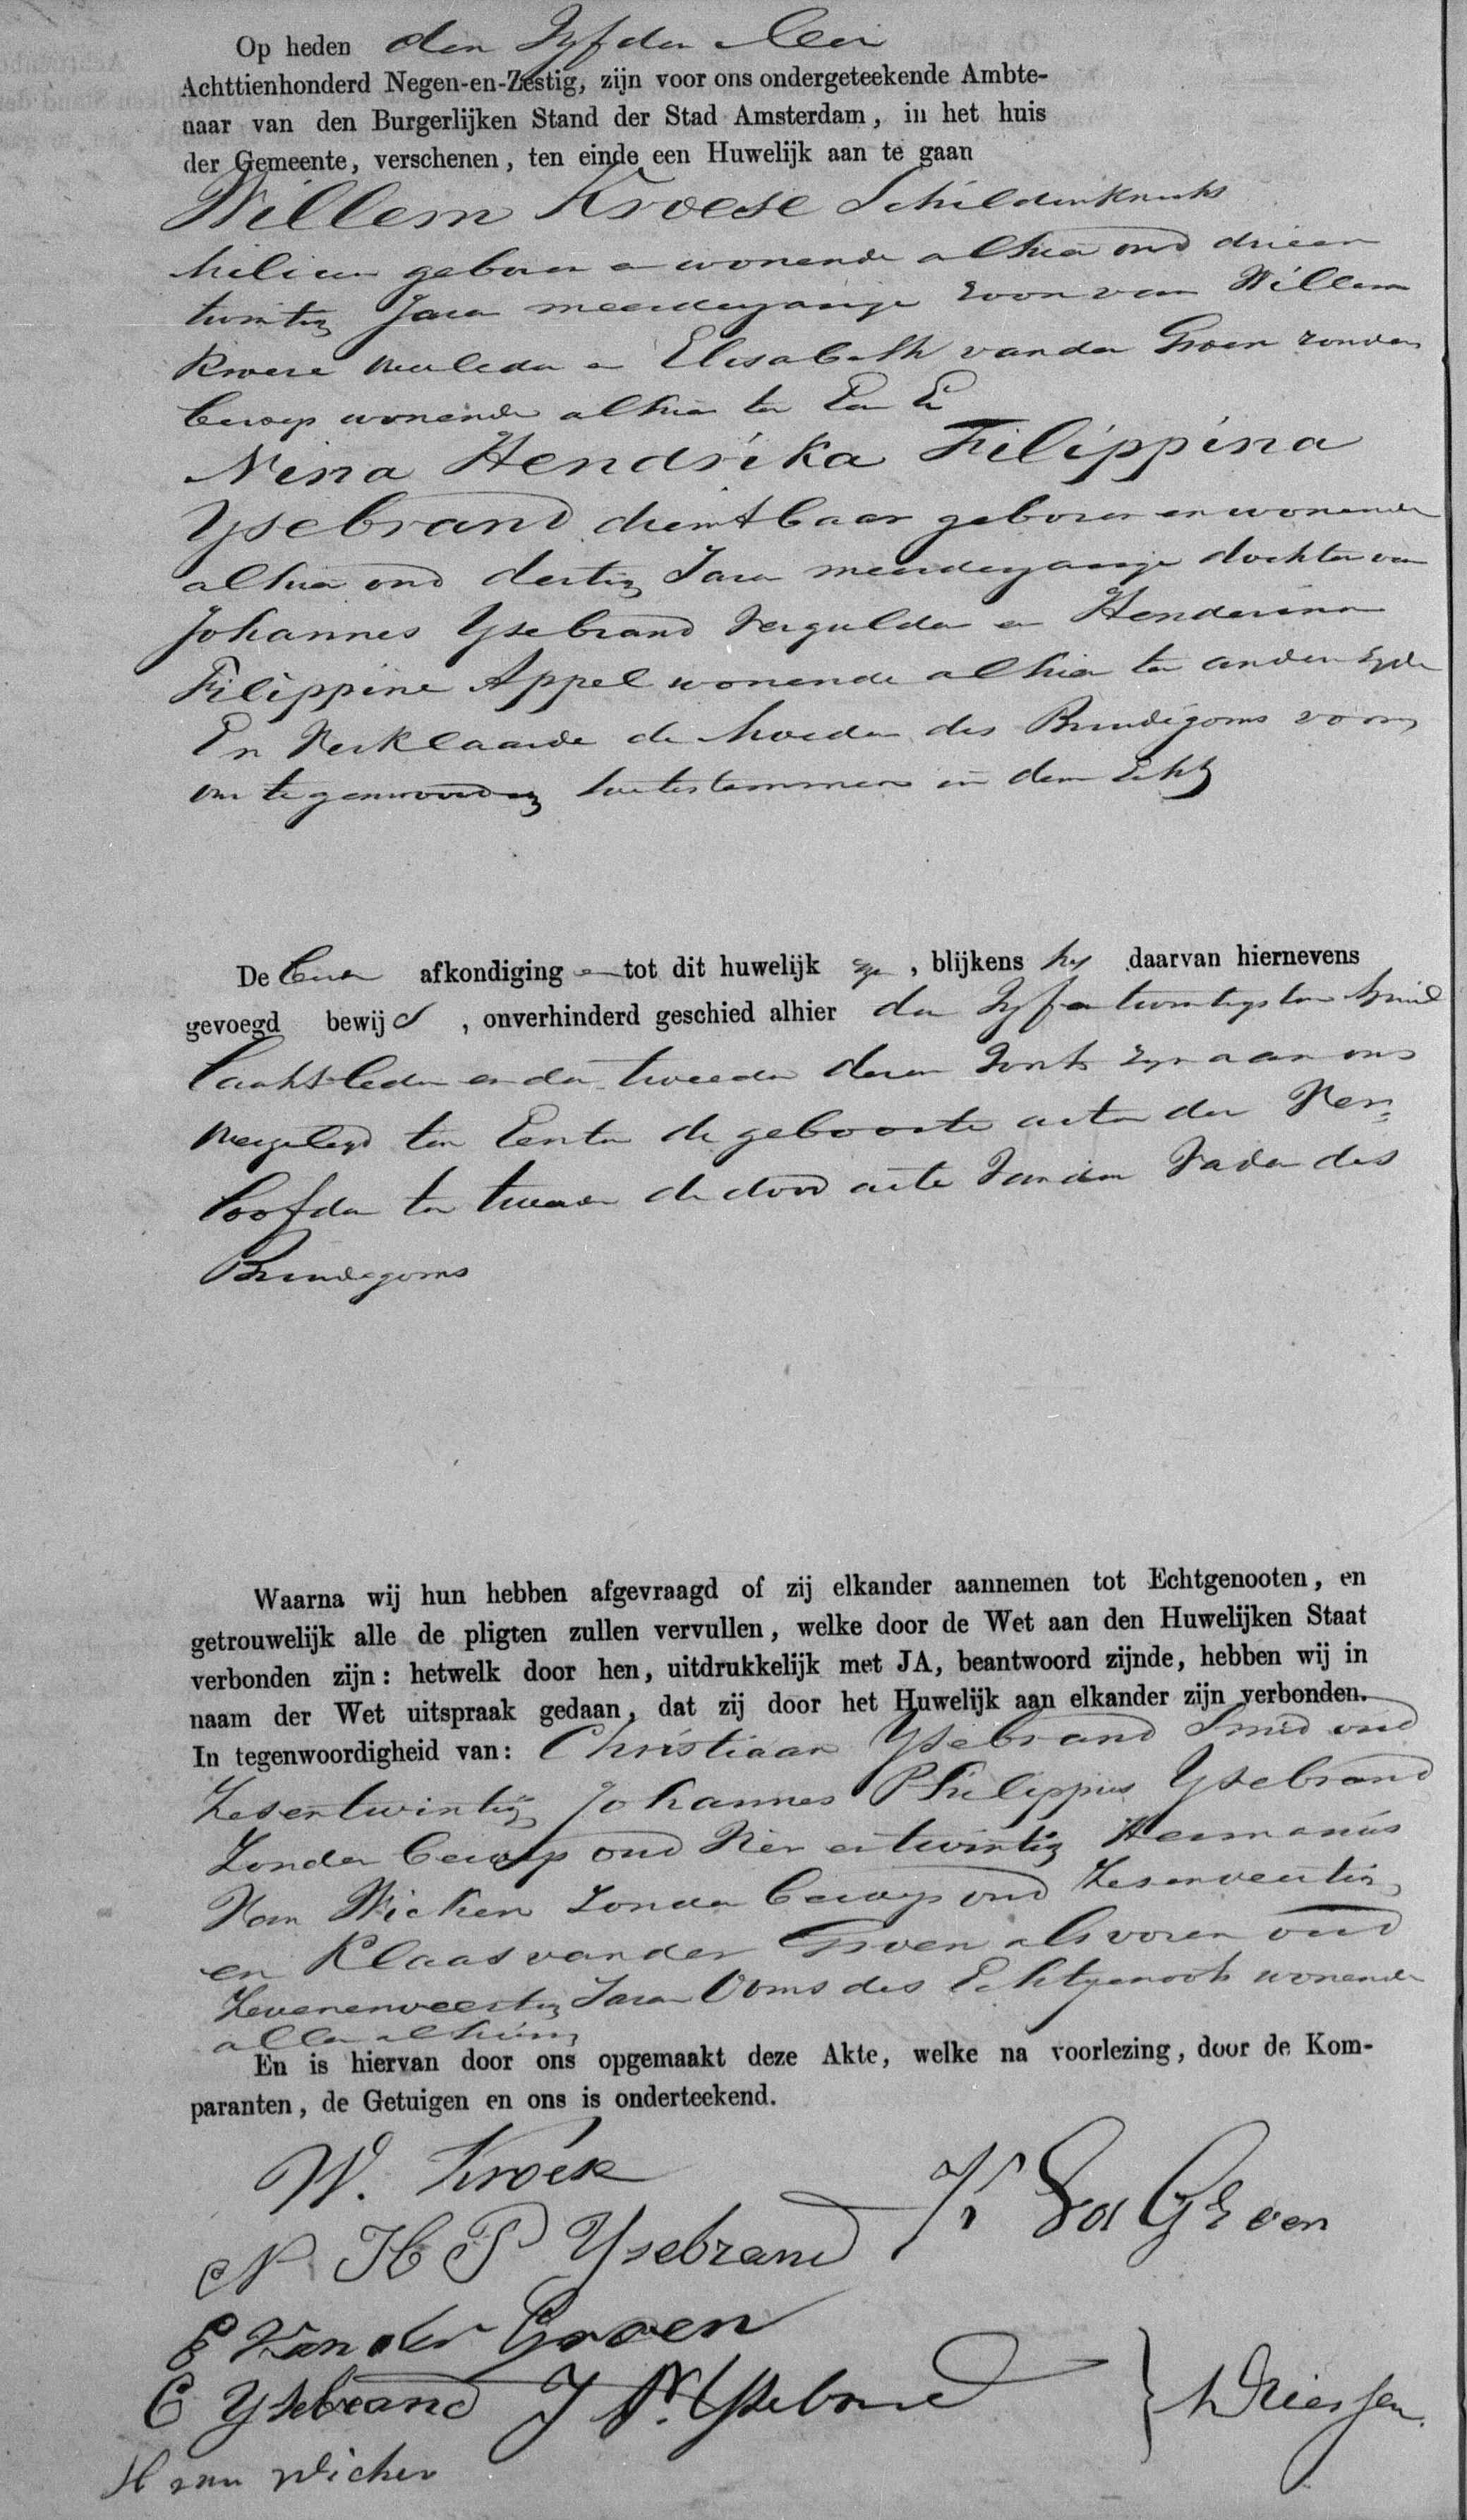 Op heden den Vyfden Mei
Achttienhonderd Negen-en-Zestig, zijn voor ons ondergeteekende Ambte-
naar van den Burgerlijken Stand der Stad Amsterdam, in het huis
der Gemeente, verschenen, ten einde een Huwelijk aan te gaan
Willem Kroese Schildersknecht
geboren en wonende alhier oud drieen
twintig Jaren meerderjarige zoon van Willem
Kroese overleden en Elisabeth van der Groen zonder
beroep wonende alhier ter Een En
Nina Hendrika Filippina
Ysebrand dienstbaar geboren en wonende
alhier oud dertig Jaren meerderjarige dochter van
Johannes Ysebrand Vergulder en Henderina
Filippine Appel wonende alhier ter andere zyde
En Verklaarde de Moeder des Bruidegoms voor
ons tegenwoordig toetestemmen in dem Echt
De beiden afkondiging en tot dit huwelijk zyn, blijkens het daarvan hiernevens
gevoegd bewijs, onverhinderd geschied alhier den Vyfentwintigsten April
laatstleden en den tweeden dezer Voorts zyn aan ons
overgelegd ten Eersten de geboorte acten der Ver=
loofden ten tweeden de dood acte van den Vader des
Bruidegoms
Waarna wij hun hebben afgevraagd of zij elkander aannemen tot Echtgenooten, en
getrouwelijk alle de pligten zullen vervullen, welke door de Wet aan den Huwelijken Staat
verbonden zijn: hetwelk door hen, uitdrukkelijk met JA, beantwoord zijnde, hebben wij in
naam der Wet uitspraak gedaan, dat zij door het Huwelijk aan elkander zijn verbonden.
In tegenwoordigheid van: Christiaan Ysebrand Smid oud
Zesentwintig Johannes Philippus Ysebrand
Zonder beroep oud Vier entwintig Hermanus
Van Wicken Zonder beroep oud Zesenveertig
en Klaas van der Groen als voren oud
Zevenenveertig Jaren Ooms des Echtgenoots wonende
allen alhier
En is hiervan door ons opgemaakt deze Akte, welke na voorlezing, door de Kom-
paranten, de Getuigen en ons is onderteekend.
W. Kroese
N H P Ysebrand
E Van der Groen
C Ysebrand J P. Ysebrand
H van Wicken